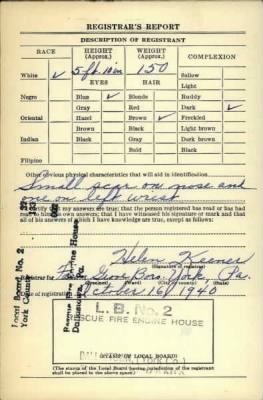 REGISTRAR'S REPORT
DESCRIPTION OF REGISTRANT
RACE HEIGHT (Approx.) WEIGHT (Approx.) COMPLEXION
White ✓ 5 ft. 10 in 150 Sallow
EYES HAIR Light
Negro Blue ✓ Blonde Ruddy
Gray Red Dark ✓
Oriental Hazel Brown ✓ Freckled
Brown Black Light brown
Indian Black Gray Dark brown
Bald Black
Filipino
Other obvious physical characteristics that will aid in identification
Small scar on nose and
one on left wrist
I certify that my answers are true; that the person registered has read or has had
read to him his own answers; that I have witnessed his signature or mark and that
all of his answers of which I have knowledge are true, except as follows:
Helen Keener
(Signature of registrar)
Registrar for Boro. York, Pa.
(Precinct) (Ward) (City or county) (State)
Date of registration October 16, 1940
Local Board No. 2
York County
133
Rescue Fire Engine House
Dallastown, Pa.
L. B. No. 2
RESCUE FIRE ENGINE HOUSE
(STAMP OF LOCAL BOARD)
(The stamp of the Local Board having jurisdiction of the registrant
shall be placed in the above space.)